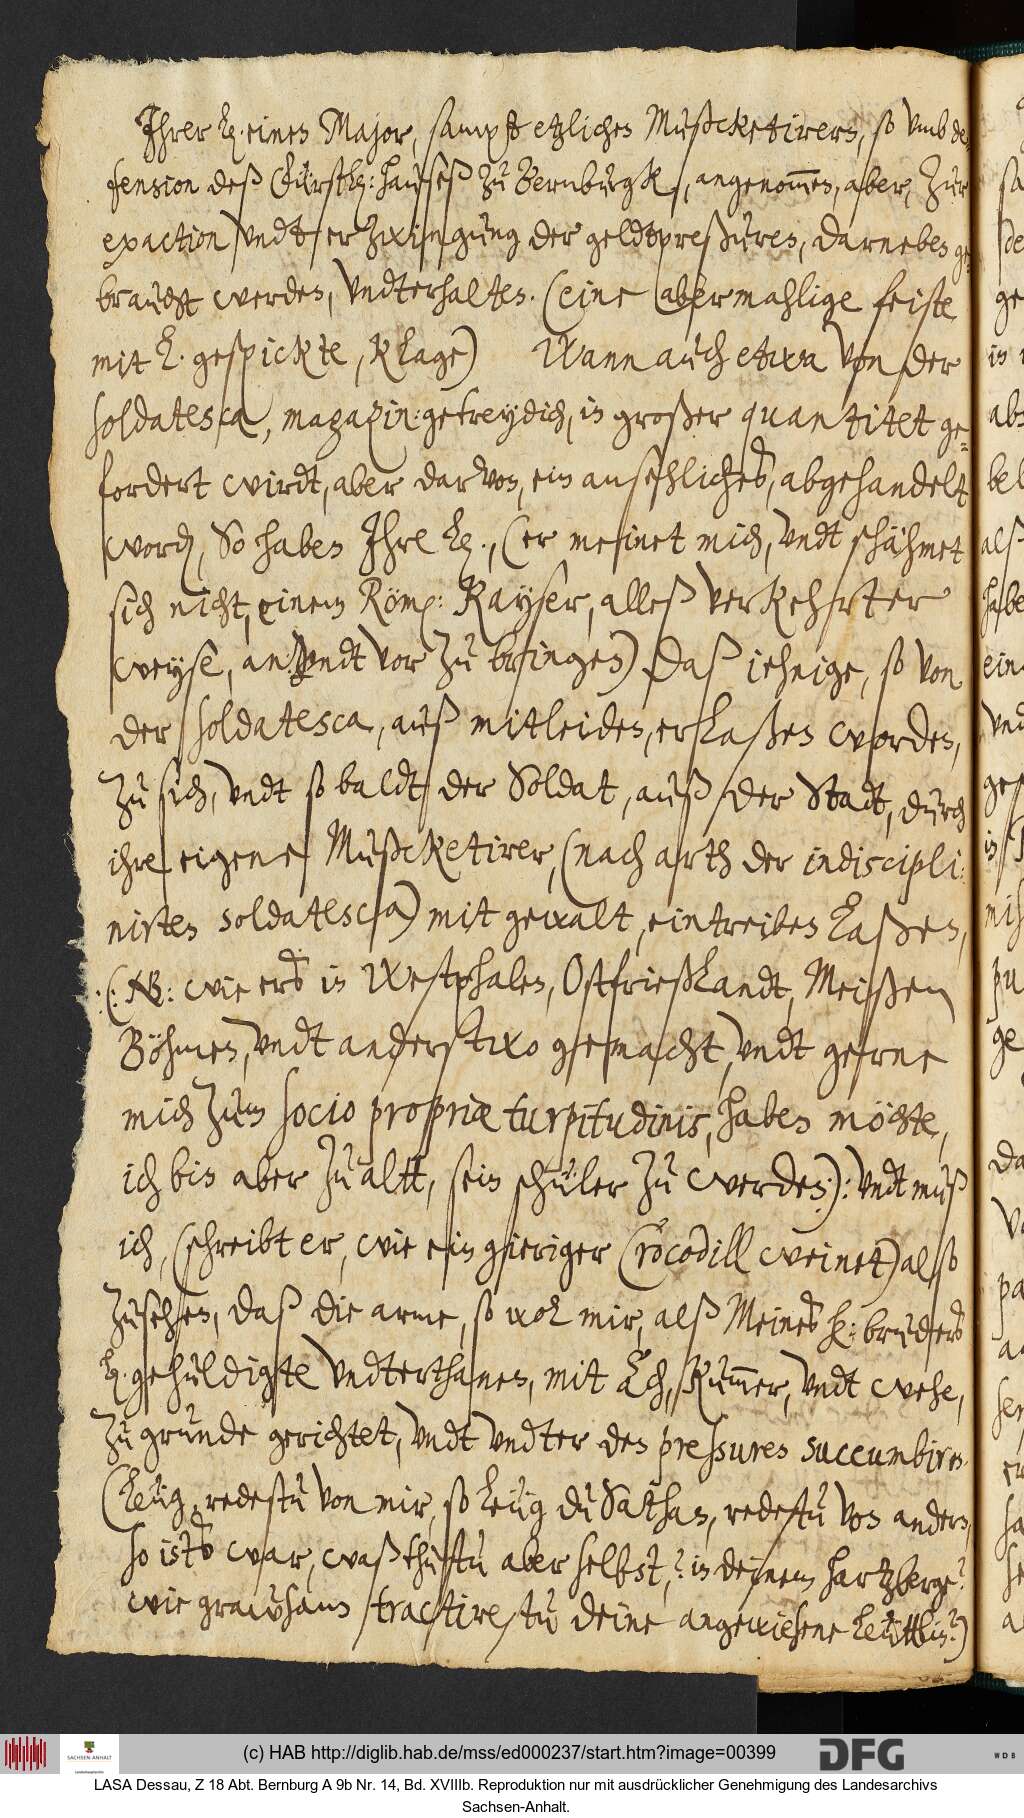 Ihrer L. einen Major, sampt etzlichen Mußcketirern, so umb de-
fension deß Fürstl: hauseß zu Bernburgk, angenommen, aber, zur
exaction undt erzwingung der geldtpreßuren, darneben ge-
braucht werden, undterhalten. (eine abermahlige feiste
mit L. gespickte, klage) Wann auch etwa von der
soldatesca, magazin: getreydich, in großer quantitet ge-
fordert wirdt, aber darvon, ein ansehliches, abgehandelt
word, So haben Ihre L., (er meinet mich, undt schähmet
sich nicht, einem Röm: Kayser, alleß verkehrter
weyse, an: undt vor zu bringen) Daß jehnige, so von
der soldatesca, auß mitleiden, erlaßen worden,
zu sich, undt so baldt der Soldat, auß der Stadt, durch
ihre eigene Mußcketirer, (nach arth der indiscipli:
nirten soldatesca) mit gewalt, eintreiben laßen,
:(: NB: wie ers in Westphalen, Ostfrießlandt, Meißen
Böhmen, undt anderstwo gemacht, undt gerne
mich zum socio propriæ turpitudinis, haben möchte,
ich bin aber zu altt, sein schüler zu werden:): undt muß
ich, (schreibt er, wie ein gieriger Crocodill weinet) also
zusehen, daß die arme, so wol mir, alß Meines h: bruders
L. gehuldigte undterthanen, mit Ach, kummer, undt wehe,
zu grunde gerichtet, undt undter den pressuren succumbiren.
(Leüg, redestu von mir, so leüg du Sathan, redestu von andern,
so ists war, waß thustu aber selbst,? in deinem hartzberge?
wie grawsam tractirestu deine angewiesene leüttlin?)
(c) HAB http://diglib.hab.de/mss/ed000237/start.htm?image=00399
SACHSEN-ANHALT
DFG
WDB
LASA Dessau, Z 18 Abt. Bernburg A 9b Nr. 14, Bd. XVIIIb. Reproduktion nur mit ausdrücklicher Genehmigung des Landesarchivs
Sachsen-Anhalt.